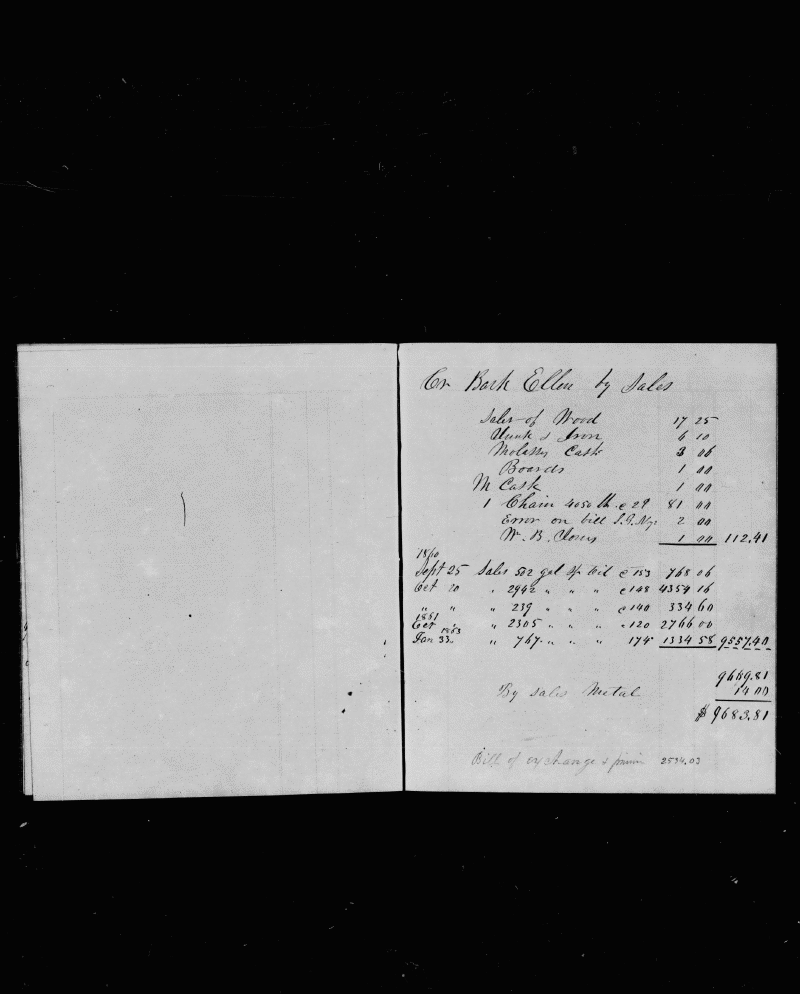 Cr Bark Ellen by Sales
Sales of Wood 17 25
Junk & Iron 6 10
Molasses Cask 3 06
Boards 1 00
M Cask 1 00
1 Chain 4050 lb @ 2 81 00
Error on bill 2 00
W. B. 1 00 112.41
1860
Sept 25 Sales 502 gal Sp Oil @ 153 768 06
Oct 20 " 2942 " " " @ 148 4354 16
" " " 239 " " " @ 140 334 60
1861
Oct " 2305 " " " " 120 2766 00
1863
Jan " 767 " " " 174 1334 58 9557.40
9669.81
By Sales Metal 14 00
$ 9683.81
Bill of exchange & 2534.03